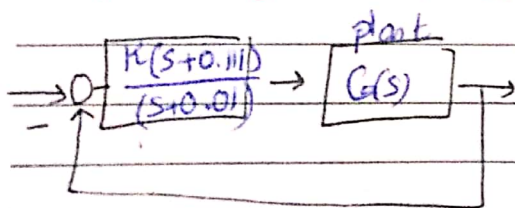 plant
K(S+0.111)
(S+0.01)
G(S)
-